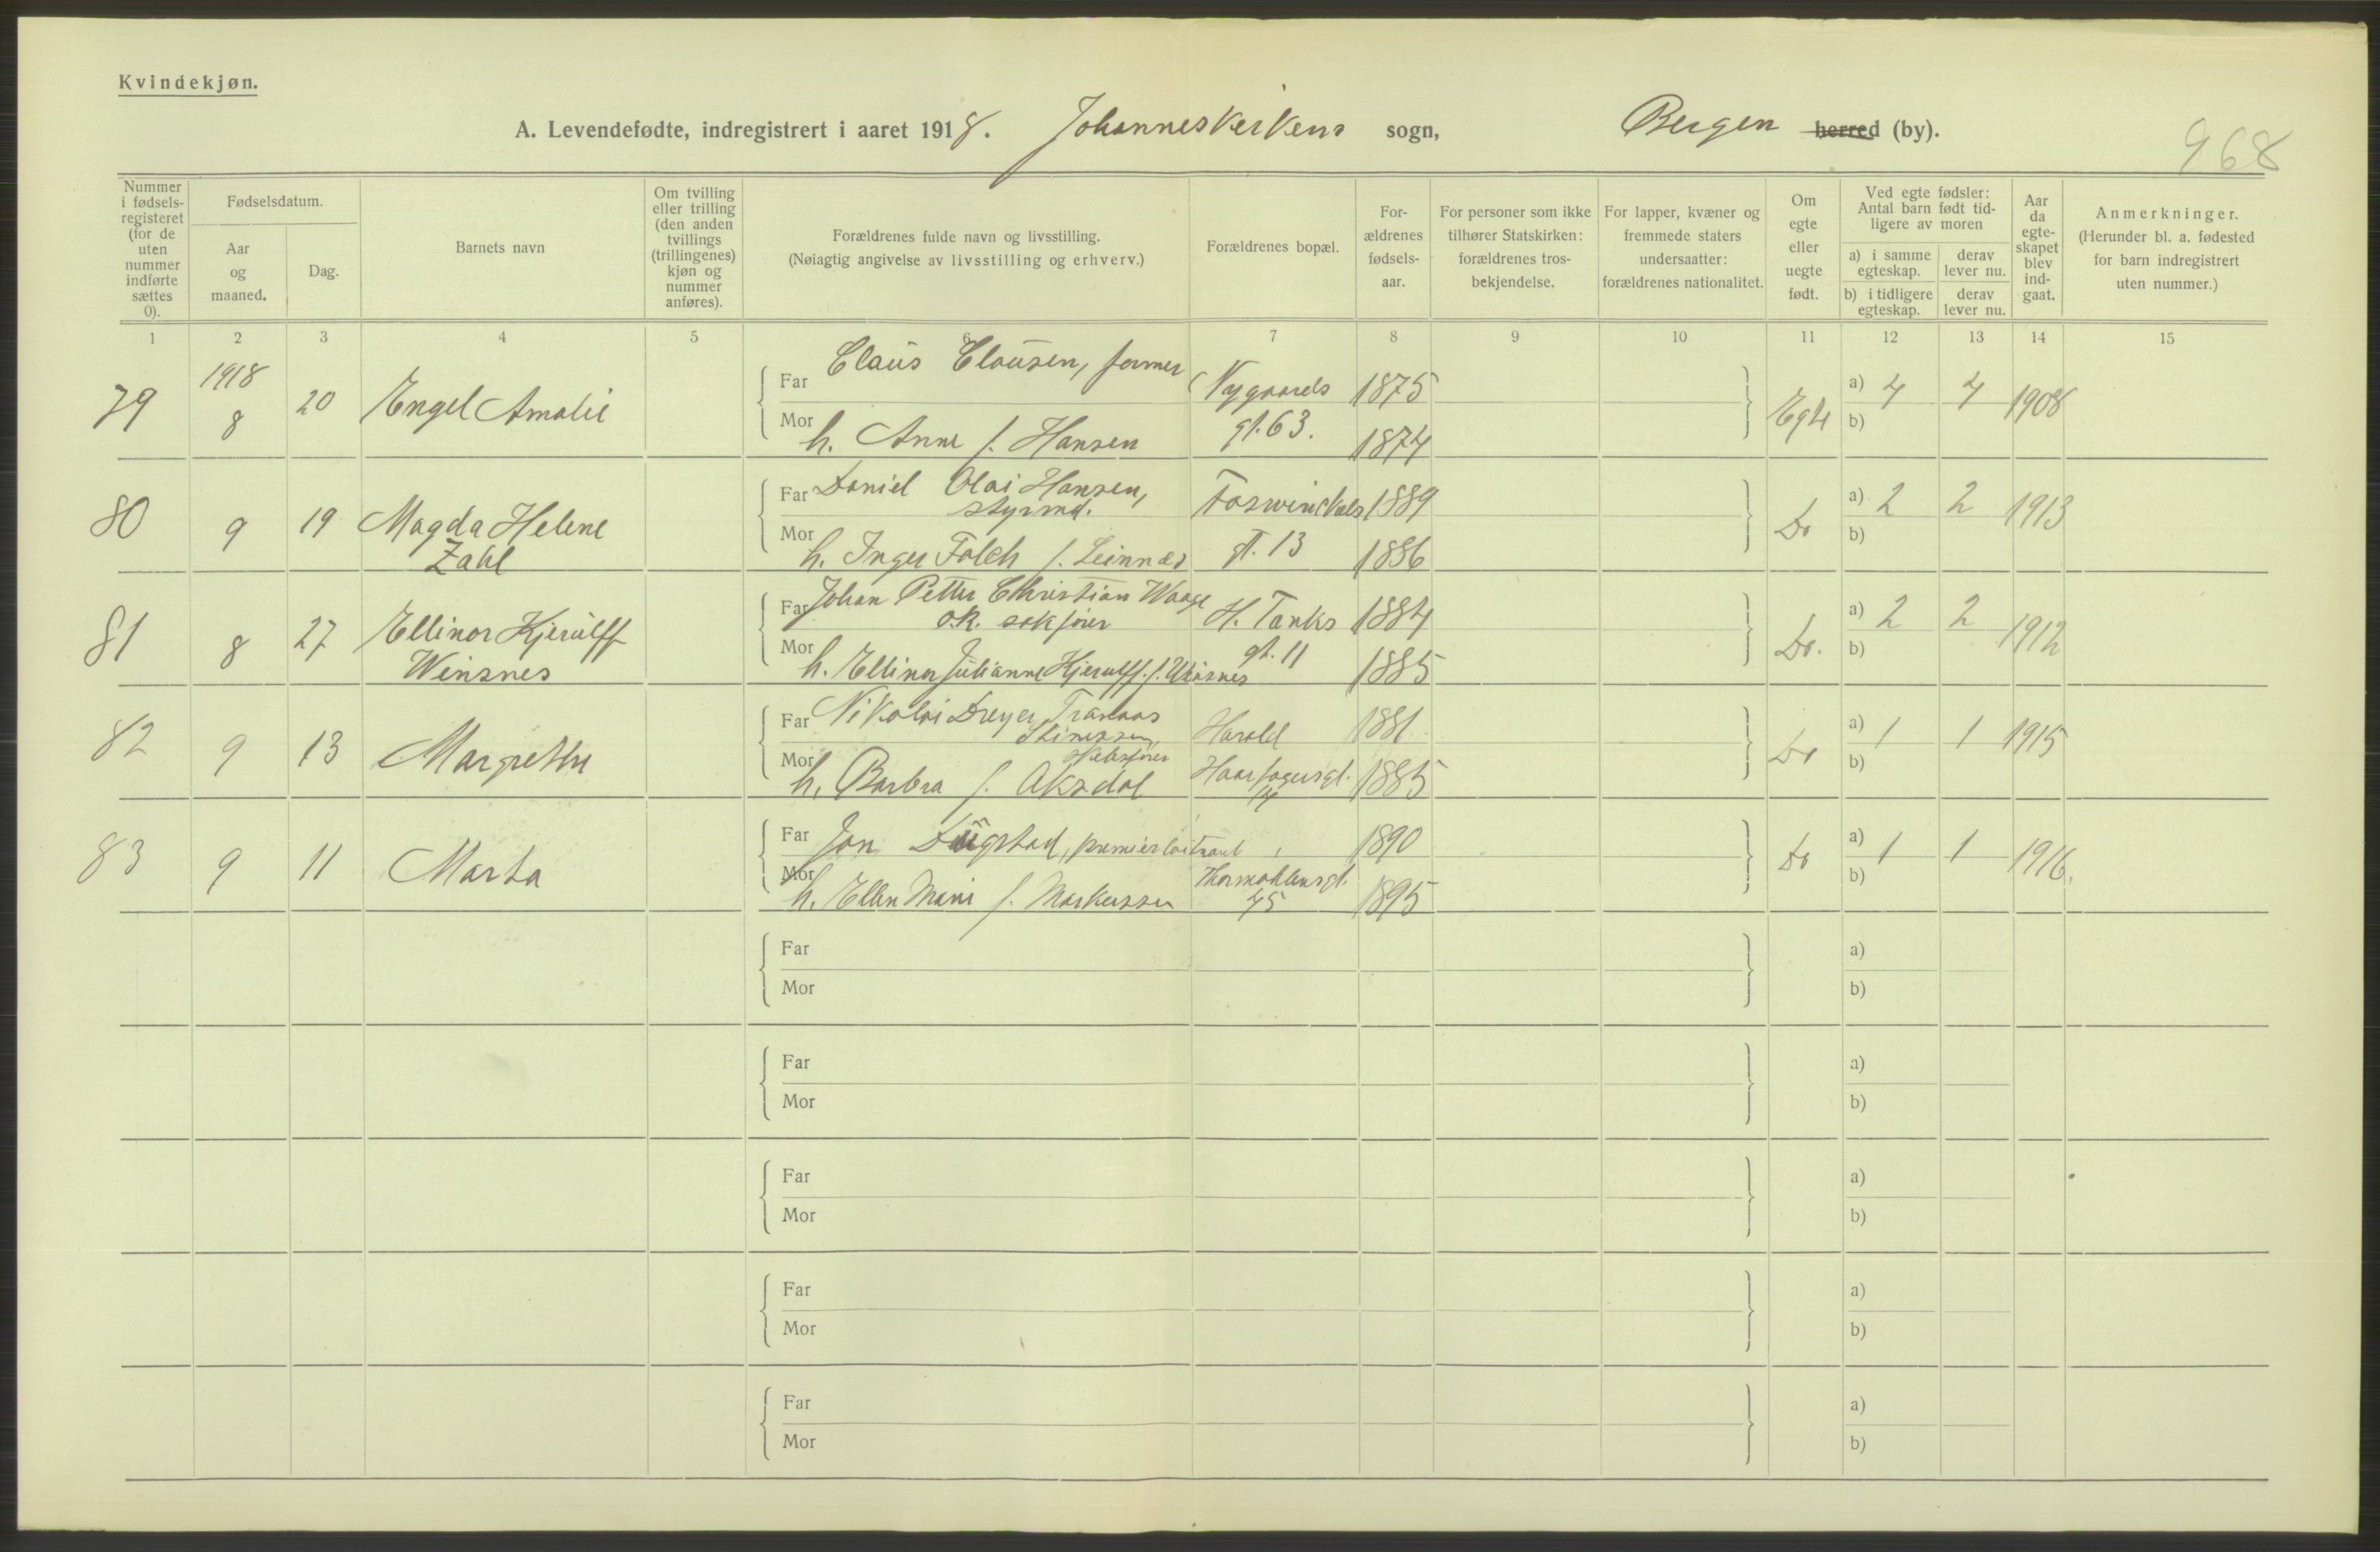 Kvindekjøn.
A. Levendefødte, indregistrert i aaret 1918. Johanneskirkens sogn, Bergen herred (by).
968
Nummer i fødsels-registeret (for de uten nummer indførte sættes 0).
Fødselsdatum.
Aar og maaned.
Dag.
Barnets navn
Om tvilling eller trilling (den anden tvillings (trillingenes) kjøn og nummer anføres).
Forældrenes fulde navn og livsstilling.
(Nøiagtig angivelse av livsstilling og erhverv.)
Forældrenes bopæl.
For-ældrenes fødsels-aar.
For personer som ikke tilhører Statskirken: forældrenes tros-bekjendelse.
For lapper, kvæner og fremmede staters undersaatter: forældrenes nationalitet.
Om egte eller uegte født.
Ved egte fødsler: Antal barn født tid-ligere av moren
a) i samme egteskap.
derav lever nu.
b) i tidligere egteskap.
derav lever nu.
Aar da egte-skapet blev ind-gaat.
Anmerkninger.
(Herunder bl. a. fødested for barn indregistrert uten nummer.)
1 2 3 4 5 6 7 8 9 10 11 12 13 14 15
79 1918 8 20 Engel Amalie Far Claus Clausen, former Nygaards 1875 Egte a) 4 4 1908
Mor h. Anne f. Hansen gt. 63. 1874 b)
80 9 19 Magda Helene Far Daniel Olai Hansen, Foswinckels 1889 Do a) 2 2 1913
styrmd.
Zahl Mor h. Inger Falch f. Leinnæs gt. 13 1886 b)
81 8 27 Ellinor Kjerulff Far Johan Petter Christian Waage H. Tanks 1884 Do. a) 2 2 1912
o.r. sakfører
Weisnes Mor h. Ellinor Julianne Kjerulff f. gt. 11 1885 b)
82 9 13 Margrethe Far Nikolai Dreyer Harald 1881 Do a) 1 1 1915
Mor h. Barbra f. Aksdal Haarfagersgt. 1885 b)
14
83 9 11 Marta Far Jon Dugstad, premierløitnant 1890 Do a) 1 1 1916.
Mor h. Ellen Marie f. Markussen Thormøhlensgt. 45 1895 b)
Far a)
Mor b)
Far a)
Mor b)
Far a)
Mor b)
Far a)
Mor b)
Far a)
Mor b)